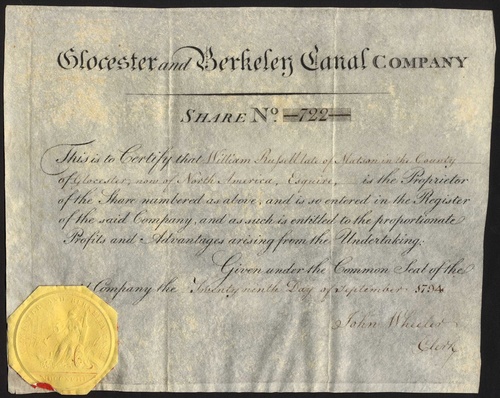 Glocester and Berkeley Canal COMPANY
SHARE No. 722
This is to Certify that William Russell late of Matson in the County
of Glocester, now of North America, Esquire, is the Proprietor
of the Share numbered as above, and is so entered in the Register
of the said Company, and as such is entitled to the proportionate
Profits and Advantages arising from the Undertaking:
Given under the Common Seal of the
Company the Twenty ninth Day of September 1794
John Wheeler
Clerk